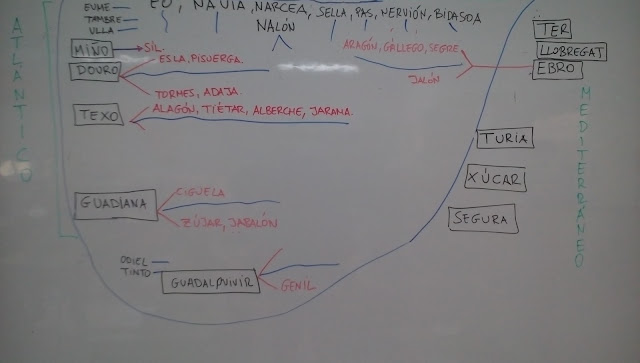 EO, NAVIA, NARCEA, SELLA, PAS, NERVIÓN, BIDASOA
EUME
TAMBRE
ULLA
NALÓN
ATLÁNTICO
MIÑO
SIL.
DOURO
ESLA, PISUERGA.
TORMES, ADAJA.
TEXO
ALAGÓN, TIÉTAR, ALBERCHE, JARAMA.
GUADIANA
CIGUELA
ZÚJAR, JABALÓN
ODIEL
TINTO
GUADALQUIVIR
GENIL
ARAGÓN, GÁLLEGO, SEGRE
JALÓN
TER
LLOBREGAT
EBRO
TURIA
XÚCAR
SEGURA
MEDITERRÁNEO